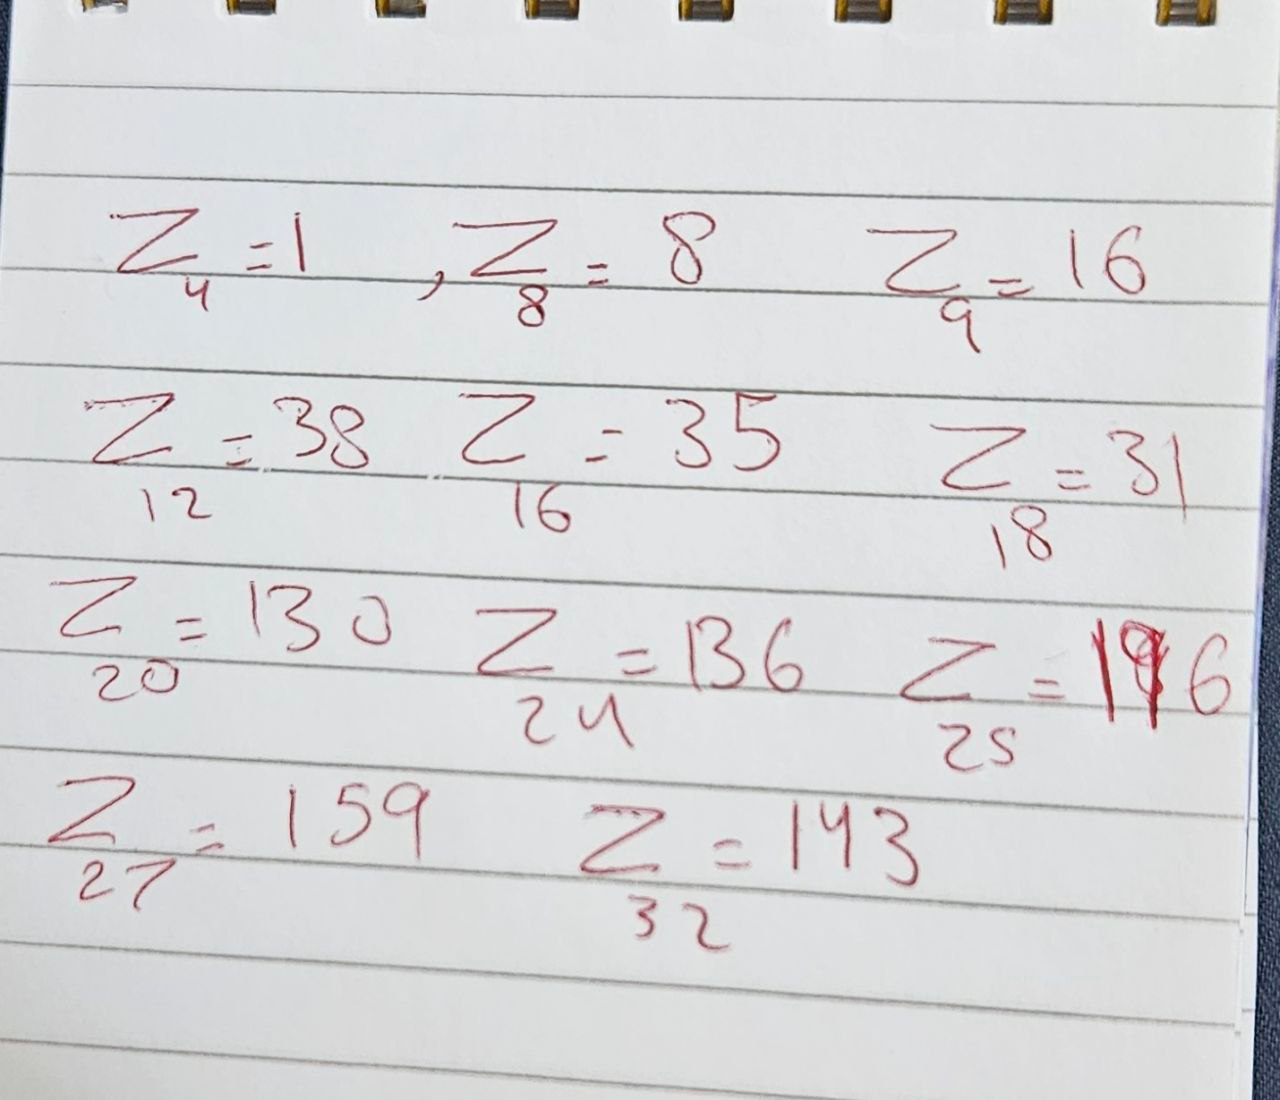 Z₄ = 1 , Z₈ = 8 Z₉ = 16
Z₁₂ = 38 Z₁₆ = 35 Z₁₈ = 31
Z₂₀ = 130 Z₂₄ = 136 Z₂₅ =
Z₂₇ = 159 Z₃₂ = 143